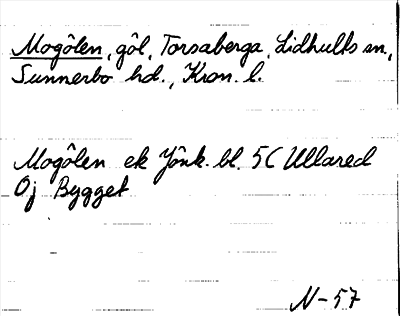 Mogölen, göl, Torsaberga, Lidhults sn,
Sunnerbo hd., Kron. l.
Mogölen ek Jönk. bl. 5C Ullared
Oj Bygget
N-57